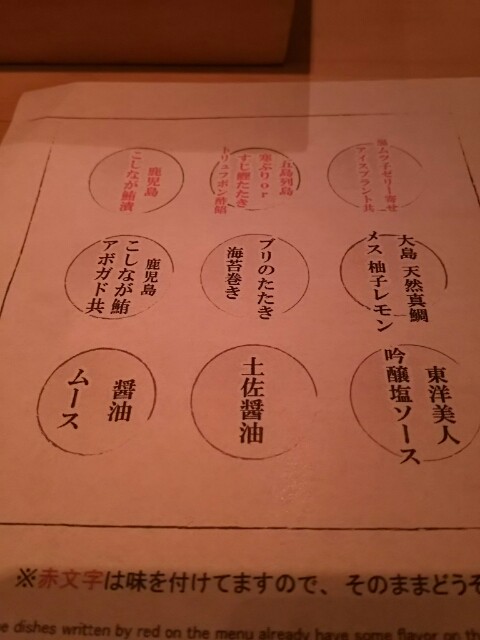 黒ムツ子ゼリー寄せ
アイスプラント共
五島列島
寒ぶりor
すじ鰹たたき
トリュフポン酢餡
鹿児島
こしなが鮪漬
大島 天然真鯛
メス 柚子レモン
ブリのたたき
海苔巻き
鹿児島
こしなが鮪
アボガド共
東洋美人
吟醸塩ソース
土佐醤油
醤油
ムース
※赤文字は味を付けてますので、そのままどうぞ
e dishes written by red on the menu already have some flavor on the